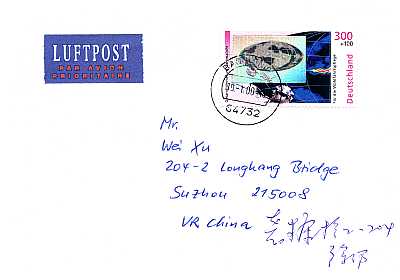 LUFTPOST
PAR AVION
PRIORITAIRE
300
+100
Deutschland
64732
Mr.
Wei Xu
204-2 Longhang Bridge
Suzhou 215008
VR China
2-204